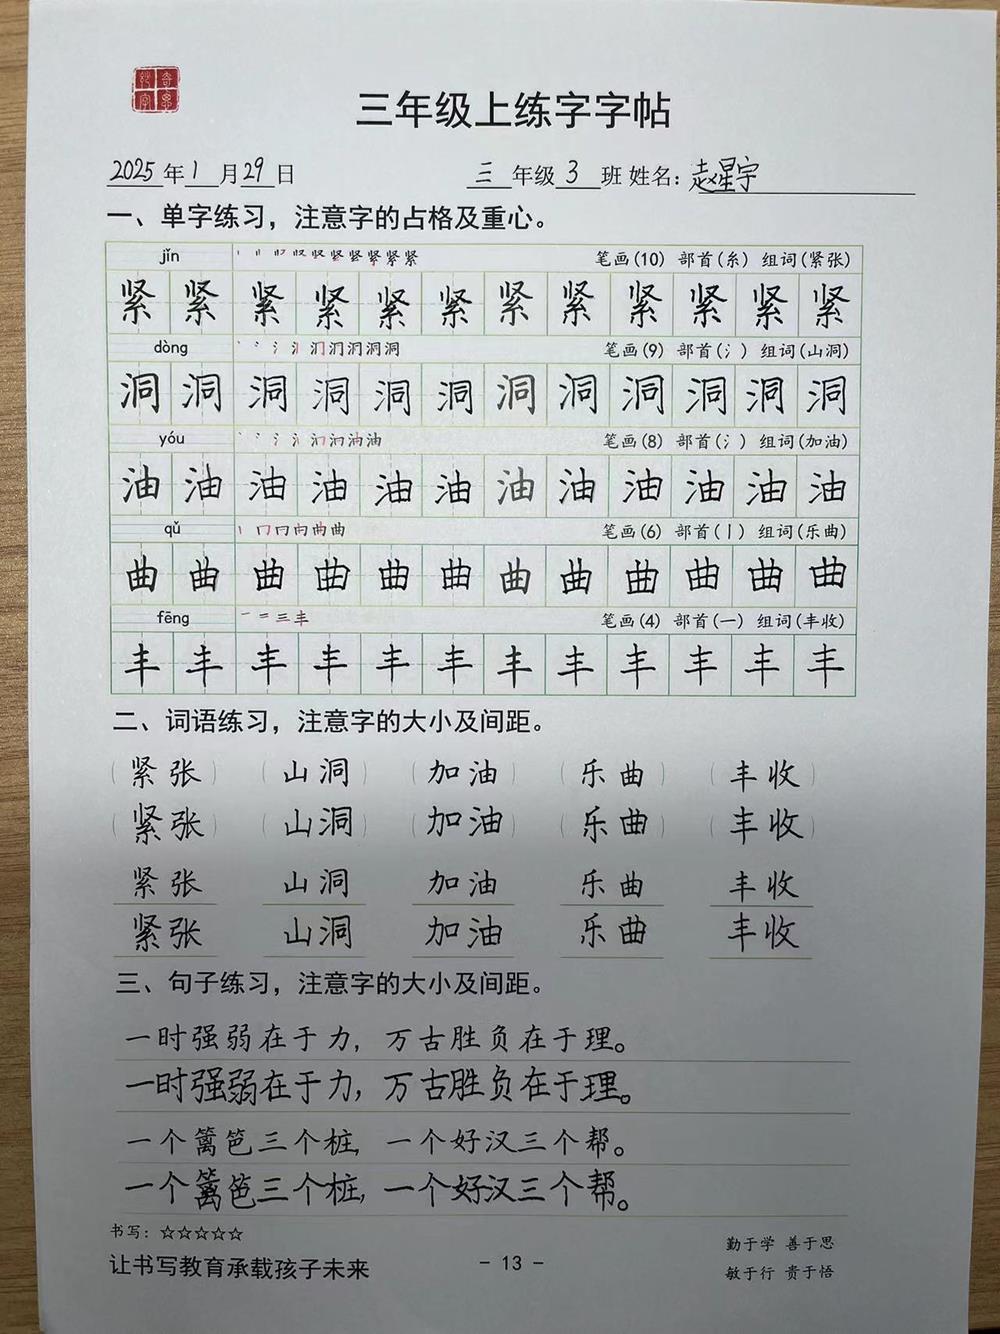 三年级上练字字帖
2025年1月29日 三年级3班 姓名：赵星宇
一、单字练习，注意字的占格及重心。
jǐn 笔画(10) 部首(糸) 组词(紧张)
紧 紧 紧 紧 紧 紧 紧 紧 紧 紧 紧 紧
dòng 笔画(9) 部首(氵) 组词(山洞)
洞 洞 洞 洞 洞 洞 洞 洞 洞 洞 洞 洞
yóu 笔画(8) 部首(氵) 组词(加油)
油 油 油 油 油 油 油 油 油 油 油 油
qǔ 笔画(6) 部首(丨) 组词(乐曲)
曲 曲 曲 曲 曲 曲 曲 曲 曲 曲 曲 曲
fēng 一 二 三 丰 笔画(4) 部首(一) 组词(丰收)
丰 丰 丰 丰 丰 丰 丰 丰 丰 丰 丰 丰
二、词语练习，注意字的大小及间距。
(紧张) (山洞) (加油) (乐曲) (丰收)
(紧张) (山洞) (加油) (乐曲) (丰收)
紧张 山洞 加油 乐曲 丰收
紧张 山洞 加油 乐曲 丰收
三、句子练习，注意字的大小及间距。
一时强弱在于力，万古胜负在于理。
一时强弱在于力，万古胜负在于理。
一个篱笆三个桩，一个好汉三个帮。
一个篱笆三个桩，一个好汉三个帮。
书写：☆☆☆☆☆
让书写教育承载孩子未来
- 13 -
勤于学 善于思
敏于行 贵于悟